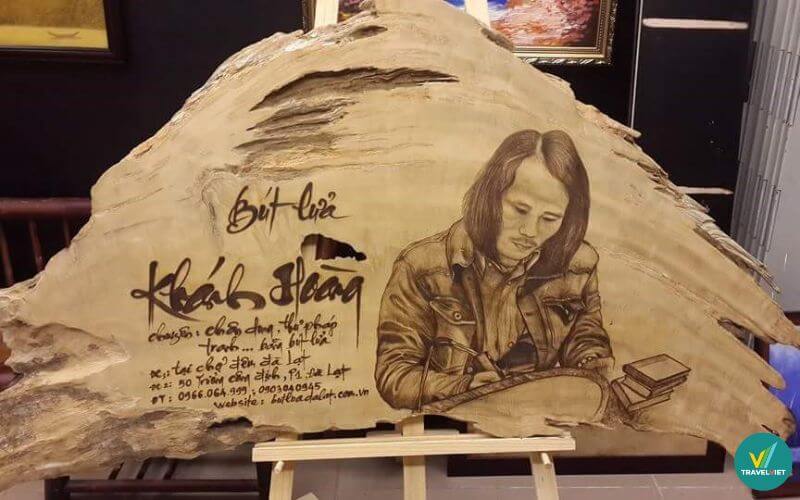 Bút lửa
Khánh Hoàng
chuyên: chân dung, thư pháp
tranh... bằng bút lửa
tại chợ đêm đà Lạt
50 Trương công định, P1 Đà Lạt
ĐT: 0966.064.999; 0903040945
website: butluadalat.com.vn
TRAVELVIET